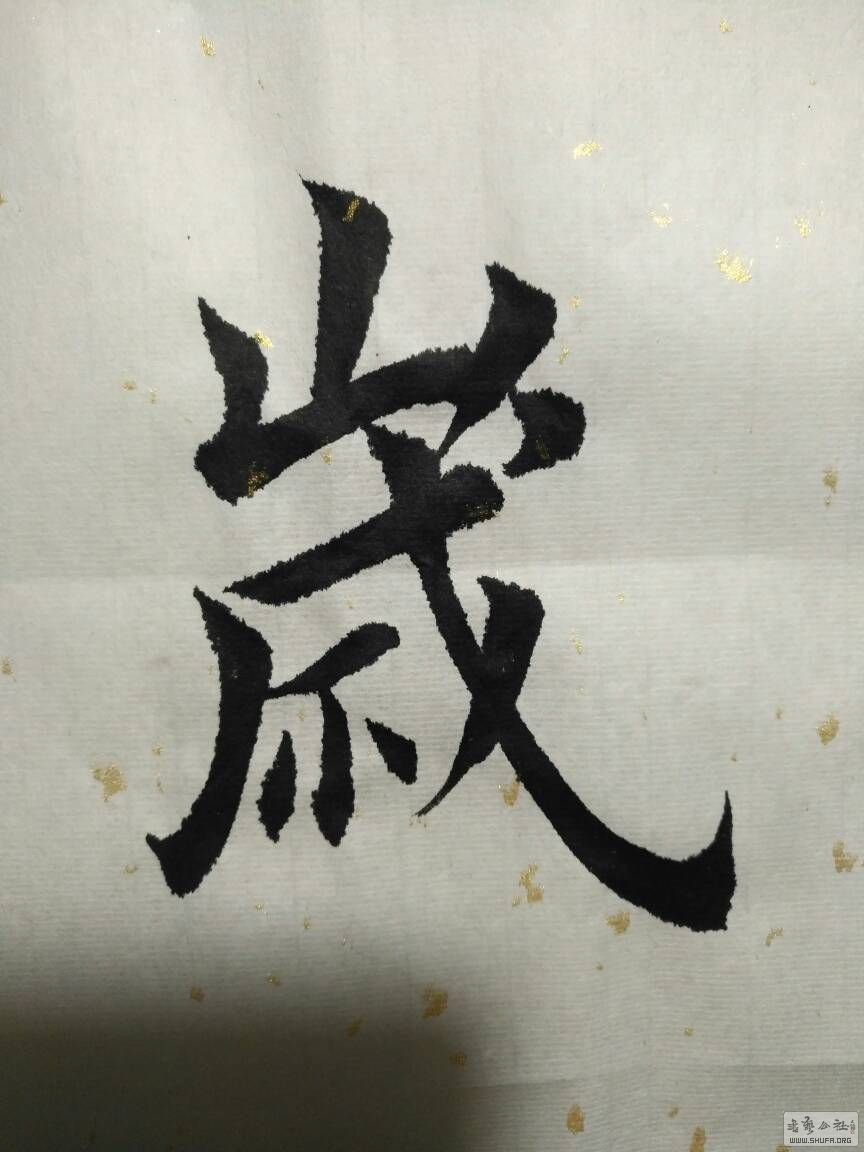 嵗
書藝公社
WWW.SHUFA.ORG